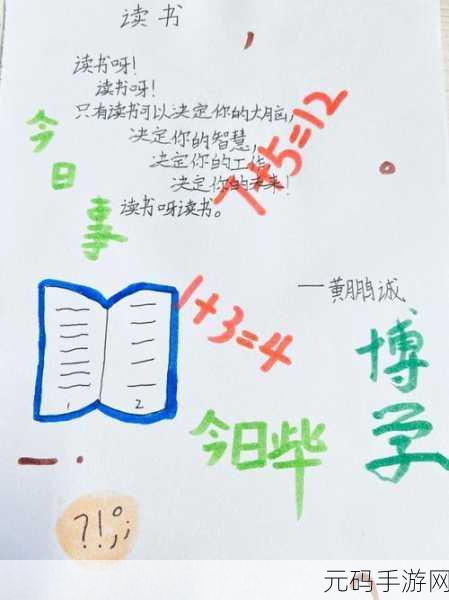 读书
读书呀!
读书呀!
只有读书可以决定你的大脑,
决定你的智慧,
决定你的工作,
决定你的未来!
读书呀读书。
——黄鹏诚
今日事
7+5=12
1+3=4
1
2
今日毕
博学
?!。,;
元码手游网